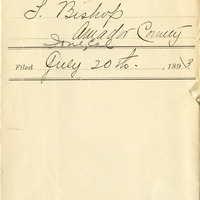 T. Bishop
Amador County
Ione, Cal
Filed July 20th. 189